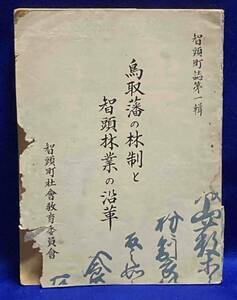 智頭町誌第一輯
鳥取藩の林制と
智頭林業の沿革
智頭町社會教育委員會